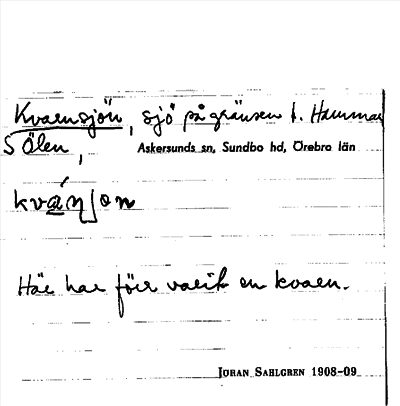 Kvarnsjön, sjö på gränsen t. Hammar
S Ölen,
Askersunds sn, Sundbo hd, Örebro län
kvá̱ɳʃon
Här har förr varit en kvarn.
JÖRAN SAHLGREN 1908-09